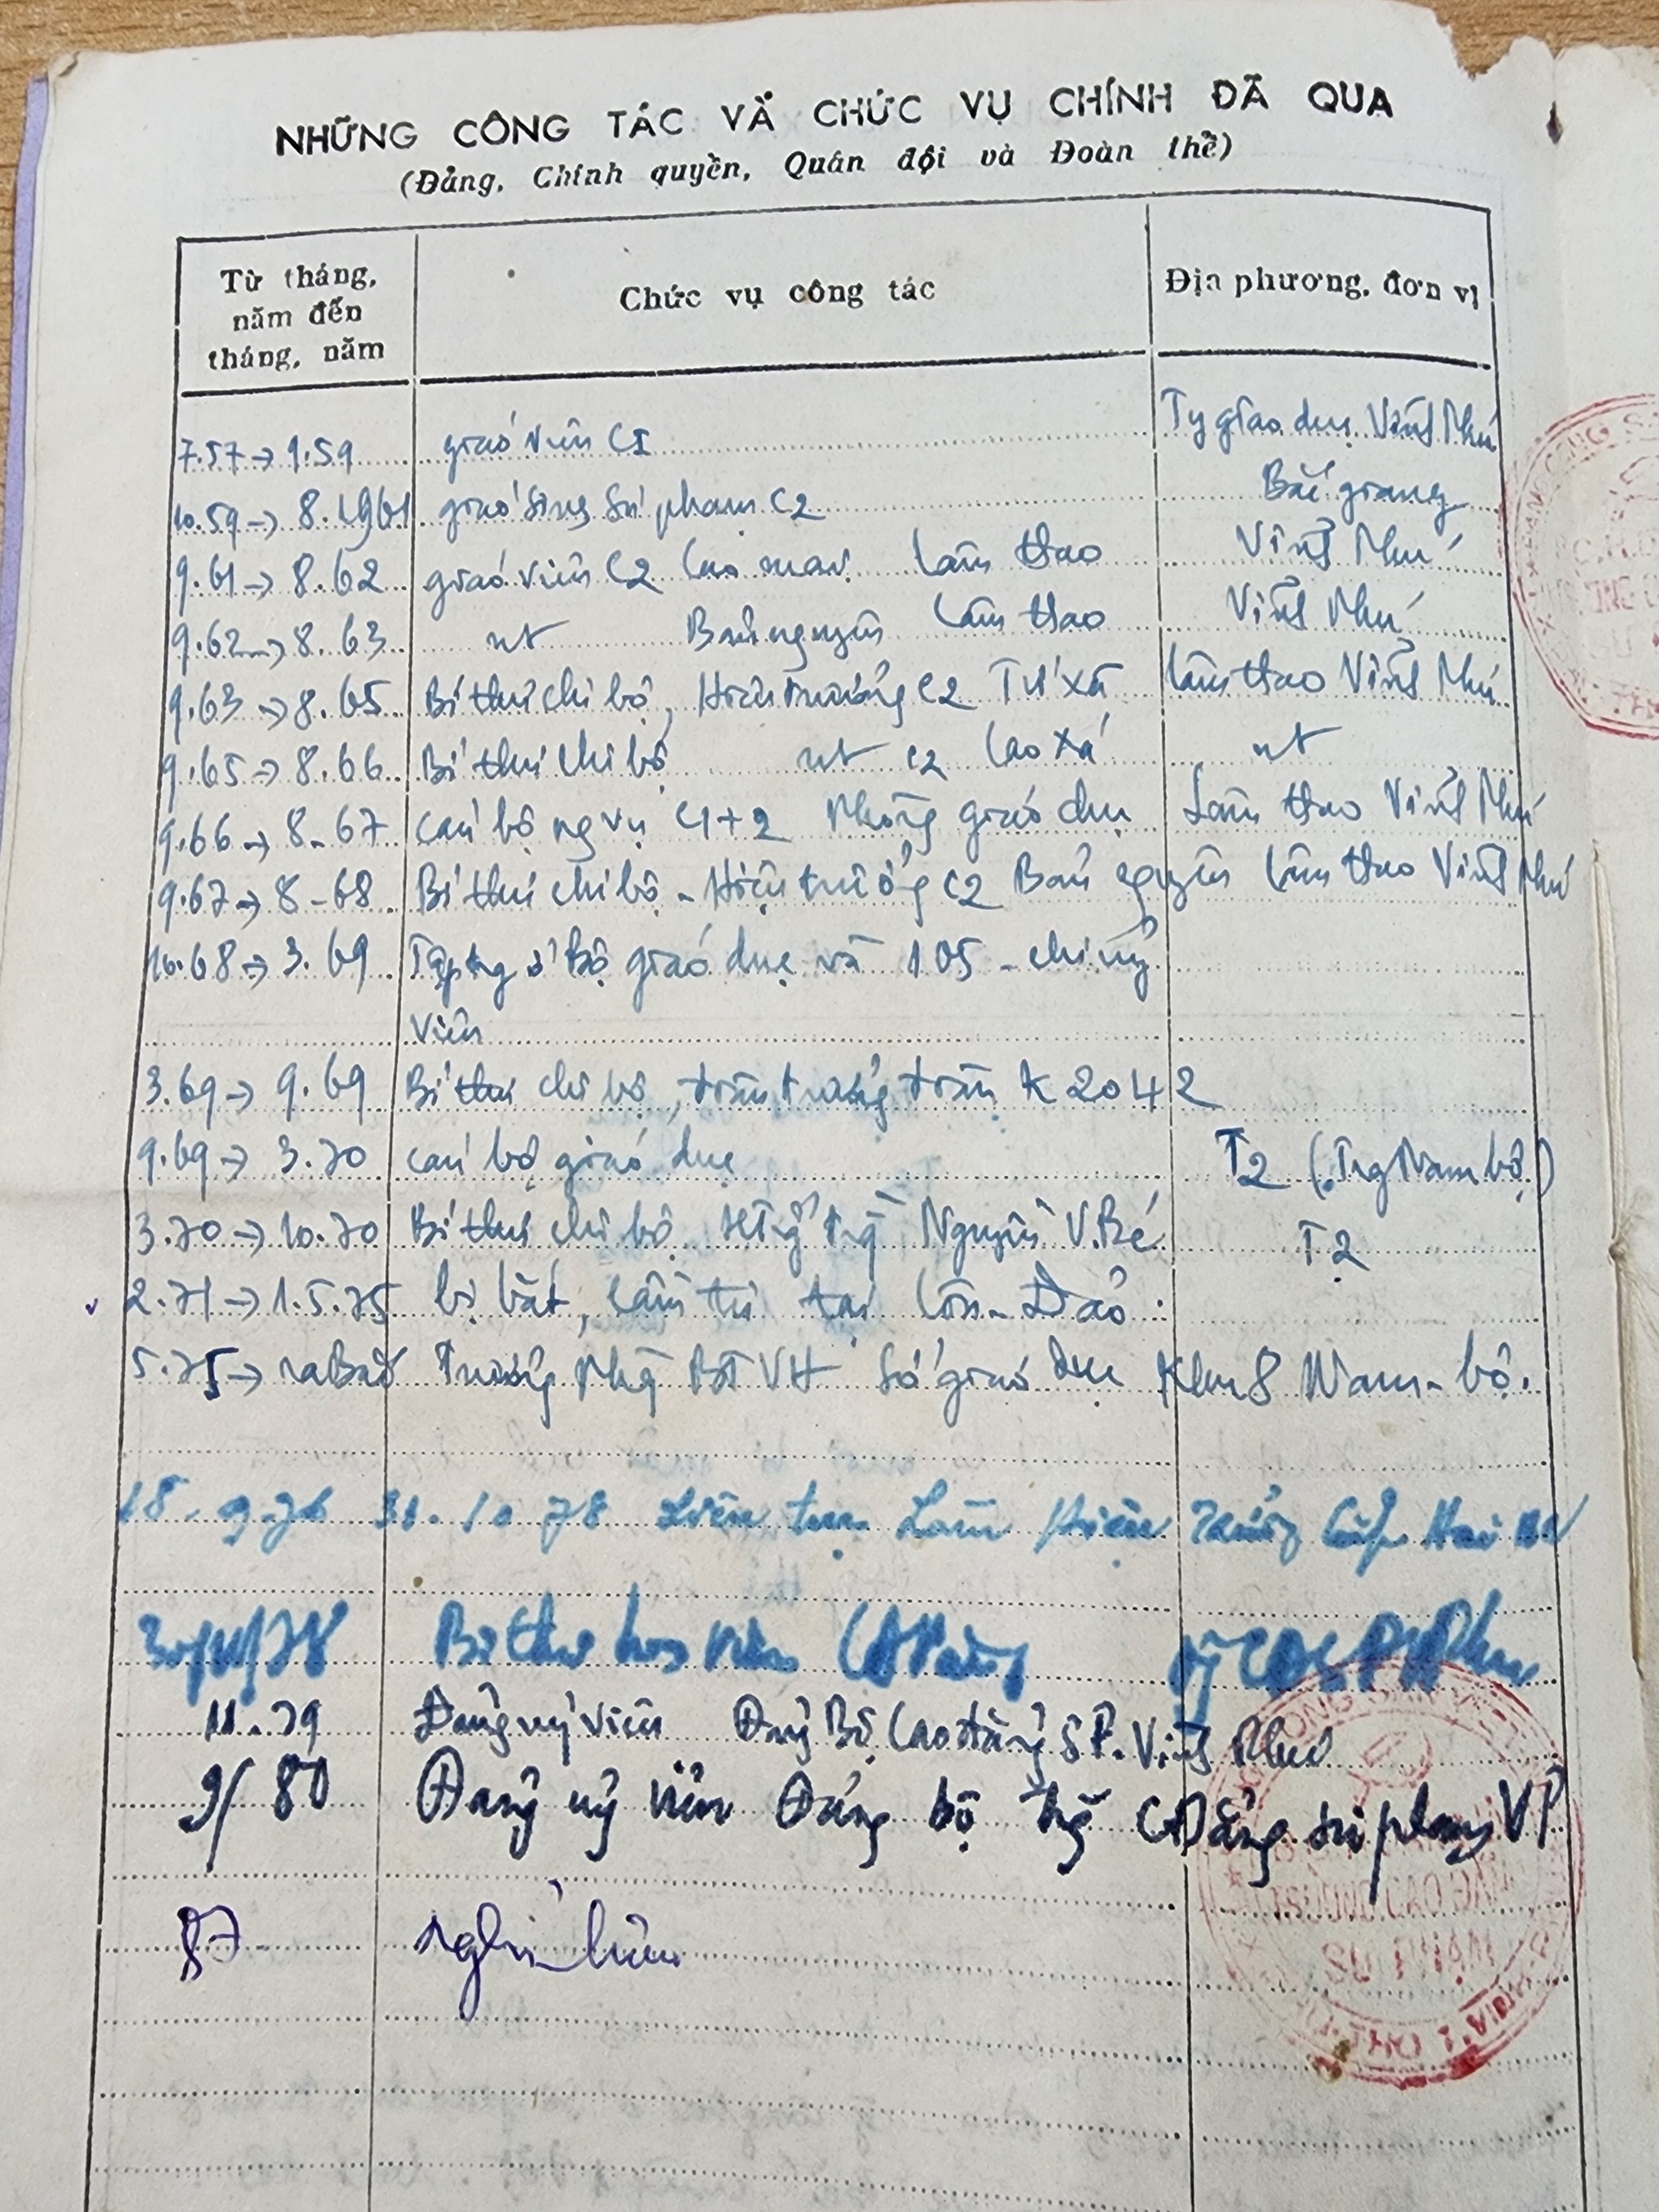 NHỮNG CÔNG TÁC VÀ CHỨC VỤ CHÍNH ĐÃ QUA
(Đảng, Chính quyền, Quân đội và Đoàn thể)
Từ tháng, năm đến tháng, năm
Chức vụ công tác
Địa phương, đơn vị
7.57 → 9.59 giáo viên C1 Ty giáo dục Vĩnh Phú
10.59 → 8.1961 giáo sinh sư phạm C2 Bắc giang
9.61 → 8.62 giáo viên C2 Cao mại Lâm thao Vĩnh Phú
9.62 → 8.63 nt Bản nguyên Lâm thao Vĩnh Phú
9.63 → 8.65 Bí thư chi bộ, Hiệu trưởng C2 Tứ xã Lâm thao Vĩnh Phú
9.65 → 8.66 Bí thư chi bộ nt C2 Cao xá nt
9.66 → 8-67 cán bộ ng vụ C1+2 Phòng giáo dục Lâm thao Vĩnh Phú
9.67 → 8-68 Bí thư chi bộ - Hiệu trưởng C2 Bản nguyên Lâm thao Vĩnh Phú
10.68 → 3.69 ở Bộ giáo dục và 105 - chi ủy
viên
3.69 → 9.69 Bí thư chi bộ, đoàn trưởng đoàn K2042
9.69 → 3.70 cán bộ giáo dục T2 (Trg Nam bộ)
3.70 → 10.70 Bí thư chi bộ Nguyễn V. Bé T2
2.71 → 1.5.75 bị bắt, cầm tù tại Côn-Đảo
5.75 → ra Bắc Trưởng Phg BTVH Sở giáo dục Khu 8 Nam-bộ.
18.9.76 31.10.78 Liên tục Làm Hiệu Trưởng Cấp Hai
78 Bí thư
11.79 Đảng uỷ viên Đảng Bộ Cao đẳng SP. Vĩnh Phú
9/80 Đảng uỷ viên Đảng bộ CĐẳng sư phạm VP
87 nghỉ hưu